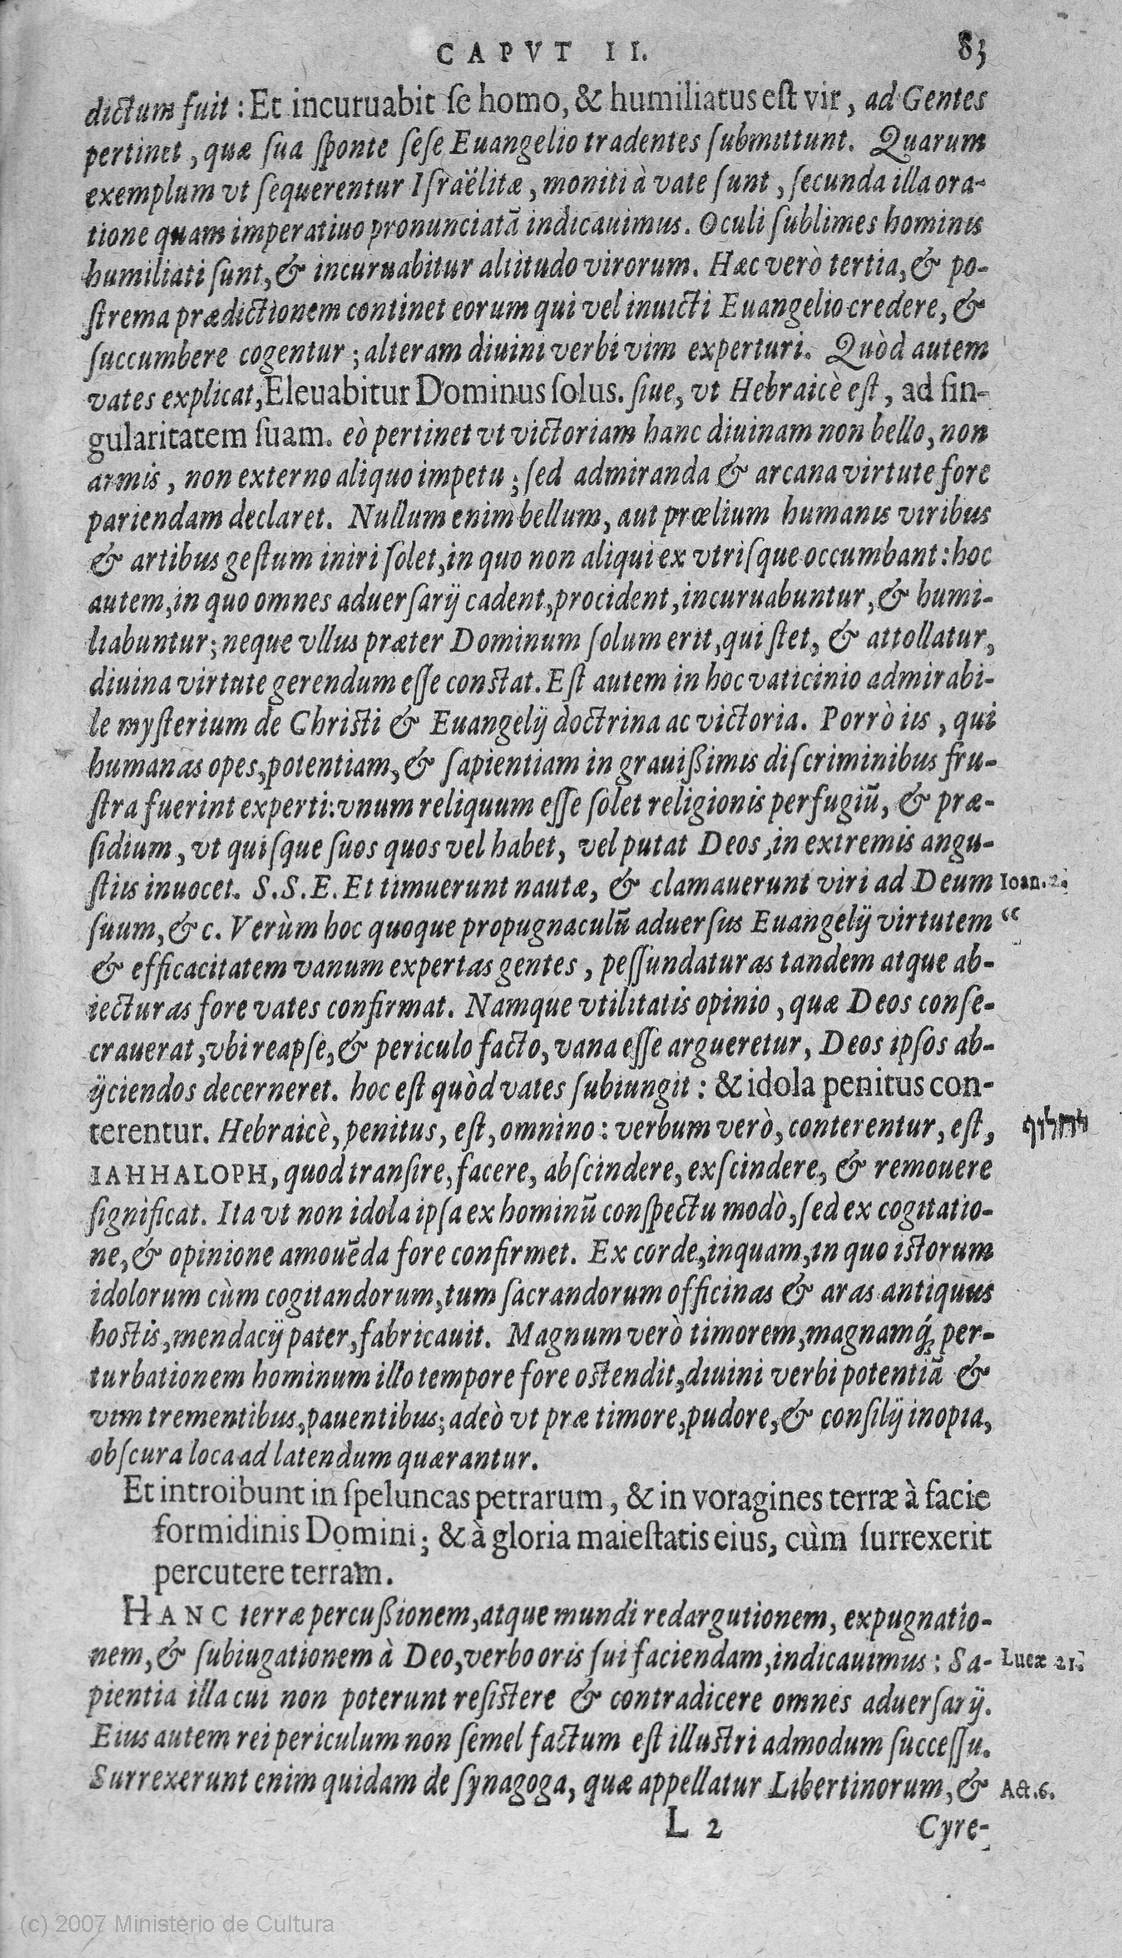 CAPVT II. 83
dictum fuit : Et incuruabit se homo, & humiliatus est vir, ad Gentes
pertinet, quæ sua sponte sese Euangelio tradentes submittunt. Quarum
exemplum vt sequerentur Israëlitæ, moniti à vate sunt, secunda illa ora-
tione quam imperatiuo pronunciatã indicauimus. Oculi sublimes hominis
humiliati sunt, & incuruabitur altitudo virorum. Hæc verò tertia, & po-
strema prædictionem continet eorum qui vel inuicti Euangelio credere, &
succumbere cogentur ; alteram diuini verbi vim experturi. Quòd autem
vates explicat, Eleuabitur Dominus solus. siue, vt Hebraicè est, ad sin-
gularitatem suam. eò pertinet vt victoriam hanc diuinam non bello, non
armis, non externo aliquo impetu ; sed admiranda & arcana virtute fore
pariendam declaret. Nullum enim bellum, aut prœlium humanis viribus
& artibus gestum iniri solet, in quo non aliqui ex vtrisque occumbant : hoc
autem, in quo omnes aduersarij cadent, procident, incuruabuntur, & humi-
liabuntur ; neque vllus præter Dominum solum erit, qui stet, & attollatur,
diuina virtute gerendum esse constat. Est autem in hoc vaticinio admirabi-
le mysterium de Christi & Euangelij doctrina ac victoria. Porrò iis, qui
humanas opes, potentiam, & sapientiam in grauißimis discriminibus fru-
stra fuerint experti : vnum reliquum esse solet religionis perfugiũ, & præ-
sidium, vt quisque suos quos vel habet, vel putat Deos, in extremis angu-
stiis inuocet. S. S. E. Et timuerunt nautæ, & clamauerunt viri ad Deum Ioan. 2.
suum, & c. Verùm hoc quoque propugnaculũ aduersus Euangelij virtutem “
& efficacitatem vanum expertas gentes, pessundaturas tandem atque ab-
iecturas fore vates confirmat. Namque vtilitatis opinio, quæ Deos conse-
crauerat, vbi reapse, & periculo facto, vana esse argueretur, Deos ipsos ab-
ijciendos decerneret. hoc est quòd vates subiungit : & idola penitus con-
terentur. Hebraicè, penitus, est, omnino : verbum verò, conterentur, est,
IAHHALOPH, quod transire, facere, abscindere, exscindere, & remouere
significat. Ita vt non idola ipsa ex hominũ conspectu modò, sed ex cogitatio-
ne, & opinione amouẽda fore confirmet. Ex corde, inquam, in quo istorum
idolorum cùm cogitandorum, tum sacrandorum officinas & aras antiquus
hostis, mendacij pater, fabricauit. Magnum verò timorem, magnamq́; per-
turbationem hominum illo tempore fore ostendit, diuini verbi potentiã &
vim trementibus, pauentibus ; adeò vt præ timore, pudore, & consilij inopia,
obscura loca ad latendum quærantur.
Et introibunt in speluncas petrarum, & in voragines terræ à facie
formidinis Domini ; & à gloria maiestatis eius, cùm surrexerit
percutere terram.
HANC terræ percußionem, atque mundi redargutionem, expugnatio-
nem, & subiugationem à Deo, verbo oris sui faciendam, indicauimus : Sa- Lucæ 21.
pientia illa cui non poterunt resistere & contradicere omnes aduersarij.
Eius autem rei periculum non semel factum est illustri admodum successu.
Surrexerunt enim quidam de synagoga, quæ appellatur Libertinorum, & Act. 6.
L 2 Cyre-
(c) 2007 Ministério de Cultura